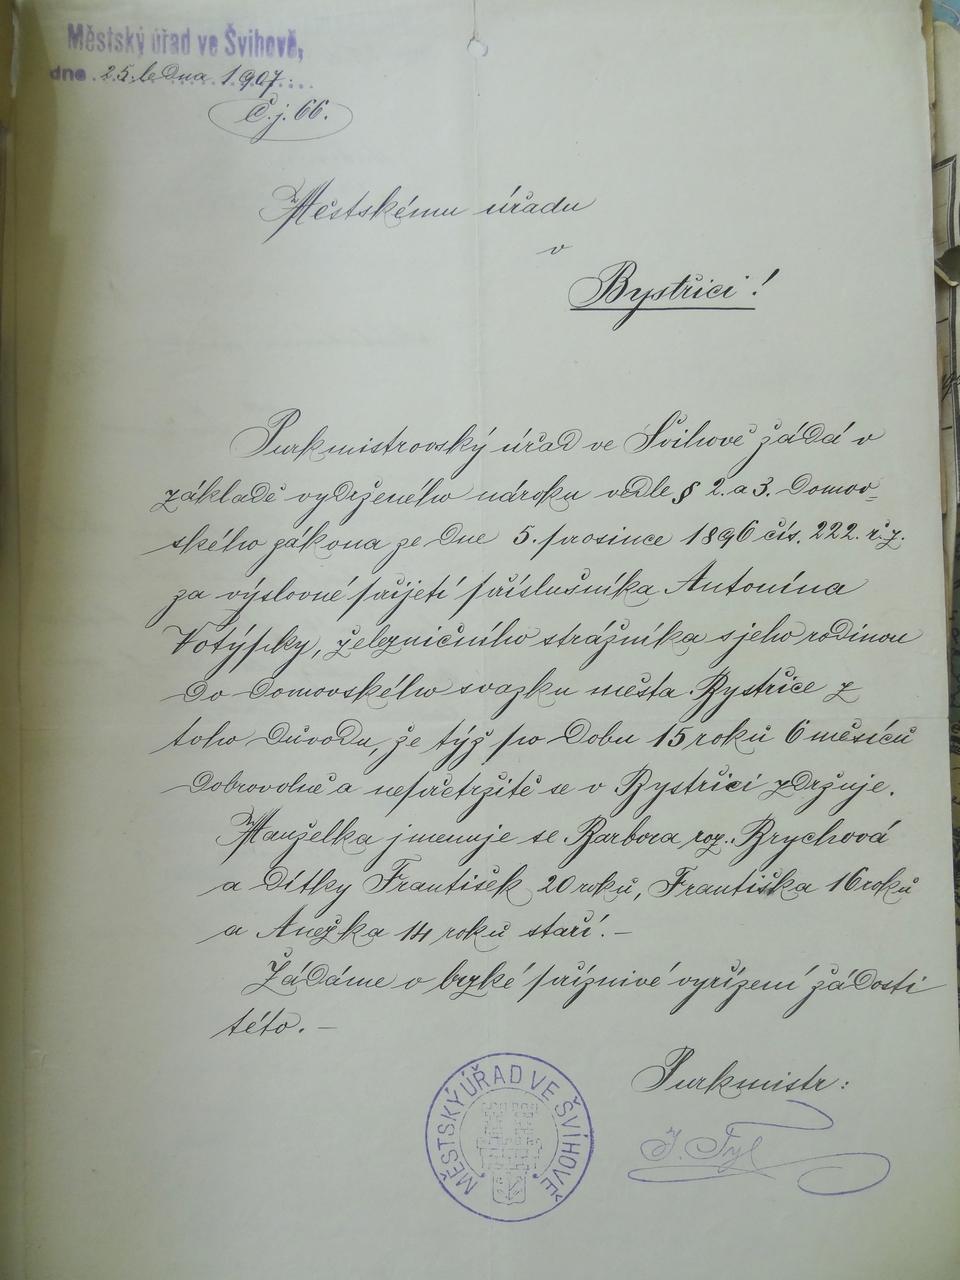 Městský úřad ve Švihově,
dne 25. ledna 1907.
Č.j. 66.
Městskému úřadu
v
Bystřici!
Purkmistrovský úřad ve Švihově žádá v
základě vydrženého nároku vedle § 2. a 3. domov=
ského zákona ze dne 5. prosince 1896 čís. 222. ř.z.
za výslovné přijetí příslušníka Antonína
Votýpky, železničního strážníka s jeho rodinou
do domovského svazku města Bystřice z
toho důvodu, že týž po dobu 15 roků 6 měsíců
dobrovolně a nepřetržitě se v Bystřici zdržuje.
Manželka jmenuje se Barbora roz. Brychová
a dítky František 20 roků, Františka 16 roků
a Anežka 14 roku staří. –
Žádáme o brzké příznivé vyřízení žádosti
této. –
Purkmistr:
J. Tyl
MĚSTSKÝ ÚŘAD VE ŠVIHOVĚ